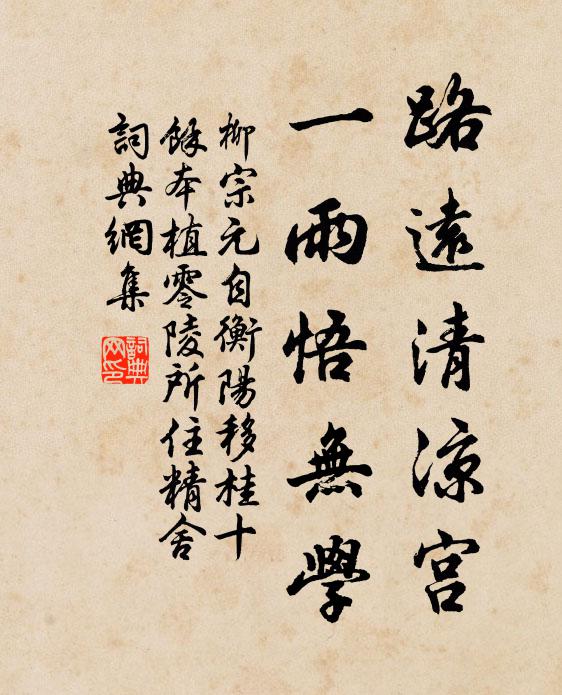 路遠清涼宮
一雨悟無學
柳宗元自衡陽移桂十
餘本植零陵所住精舍
詞典網集
詞典網印